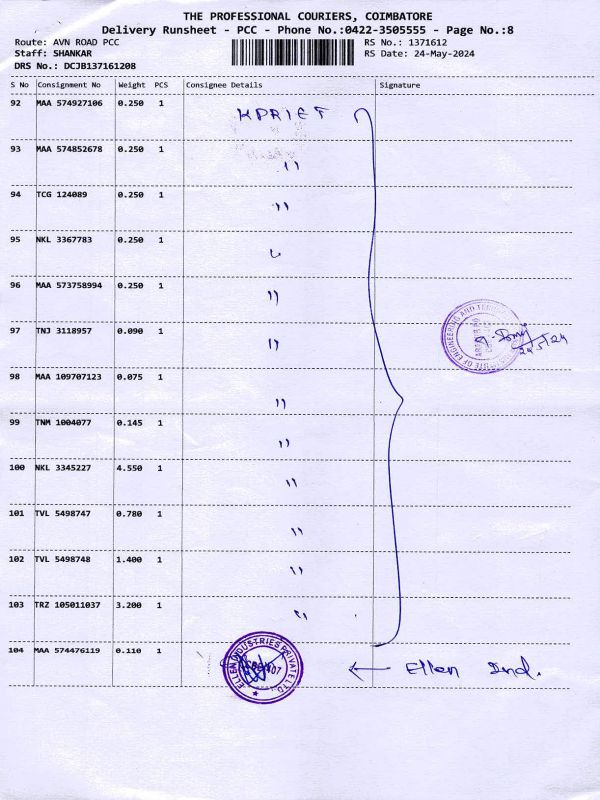 THE PROFESSIONAL COURIERS, COIMBATORE
Delivery Runsheet - PCC - Phone No.:0422-3505555 - Page No.:8
Route: AVN ROAD PCC RS No.: 1371612
Staff: SHANKAR RS Date: 24-May-2024
DRS No.: DCJB137161208
S No Consignment No Weight PCS Consignee Details Signature
92 MAA 574927106 0.250 1 KPRIET
93 MAA 574852678 0.250 1 ''
94 TCG 124089 0.250 1 ''
95 NKL 3367783 0.250 1
96 MAA 573758994 0.250 1 ''
97 TNJ 3118957 0.090 1 ''
24/5/24
98 MAA 109707123 0.075 1 ''
99 TNM 1004077 0.145 1 ''
100 NKL 3345227 4.550 1 ''
101 TVL 5498747 0.780 1 ''
102 TVL 5498748 1.400 1 ''
103 TRZ 105011037 3.200 1 ''
104 MAA 574476119 0.110 1 ELLEN INDUSTRIES PRIVATE LTD. ← Ellen Ind.